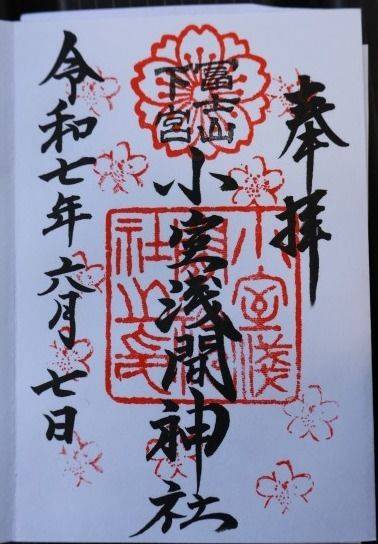 奉拝
冨士山
下宮
小室浅間神社
小室浅
間神
社之印
令和七年六月七日